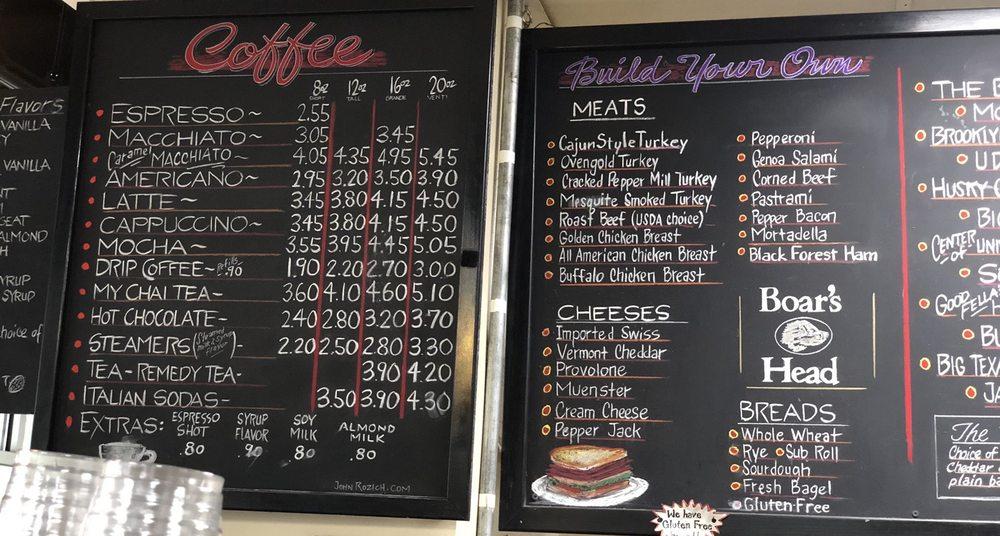 Flavors
VANILLA
VANILLA
ALMOND
SYRUP
SYRUP
choice of
Coffee
8oz 12oz 16oz 20oz
SHORT TALL GRANDE VENTI
ESPRESSO~ 2.55
MACCHIATO~ 3.05 3.45
Caramel MACCHIATO~ 4.05 4.35 4.95 5.45
AMERICANO~ 2.95 3.20 3.50 3.90
LATTE~ 3.45 3.80 4.15 4.50
CAPPUCCINO~ 3.45 3.80 4.15 4.50
MOCHA~ 3.55 3.95 4.45 5.05
DRIP COFFEE~ Refills .90 1.90 2.20 2.70 3.00
MY CHAI TEA- 3.60 4.10 4.60 5.10
HOT CHOCOLATE- 2.40 2.80 3.20 3.70
STEAMERS (Steamed milk & syrup flavor)- 2.20 2.50 2.80 3.30
TEA-REMEDY TEA- 3.90 4.20
ITALIAN SODAS- 3.50 3.90 4.30
EXTRAS: ESPRESSO SHOT .80 SYRUP FLAVOR .90 SOY MILK .80 ALMOND MILK .80
JOHNROZICH.COM
Build Your Own
MEATS
Cajun Style Turkey
Ovengold Turkey
Cracked Pepper Mill Turkey
Mesquite Smoked Turkey
Roast Beef (USDA choice)
Golden Chicken Breast
All American Chicken Breast
Buffalo Chicken Breast
Pepperoni
Genoa Salami
Corned Beef
Pastrami
Pepper Bacon
Mortadella
Black Forest Ham
CHEESES
Imported Swiss
Vermont Cheddar
Provolone
Muenster
Cream Cheese
Pepper Jack
Boar's
Head
BREADS
Whole Wheat
Rye Sub Roll
Sourdough
Fresh Bagel
Gluten-Free
We have
Gluten Free
THE
BROOKLYN
HUSKY
CENTER of
GOODFELLA
BIG TEXA
The
Choice of
cheddar
plain ba